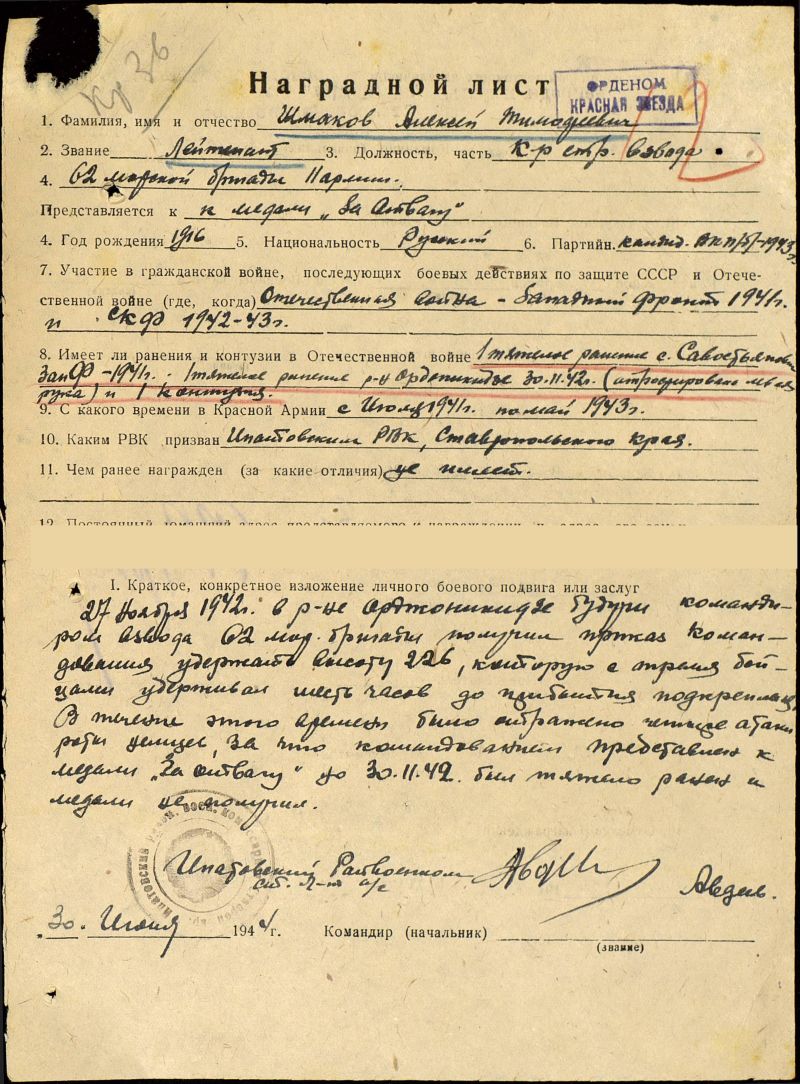 Кр 36
Наградной лист
ОРДЕНОМ
КРАСНАЯ ЗВЕЗДА
1. Фамилия, имя и отчество Шмаков Алексей Тимофеевич
2. Звание Лейтенант 3. Должность, часть К-р стр. взвода
4. 62 морской бригады
Представляется к к медали „За Отвагу"
4. Год рождения 1916 5. Национальность Русский 6. Партийн. кандид. ВКП/б/-1943г
7. Участие в гражданской войне, последующих боевых действиях по защите СССР и Отече-
ственной войне (где, когда) Отечественная война - Западный фронт 1941г.
и СКФ 1942-43г.
8. Имеет ли ранения и контузии в Отечественной войне 1 тяжелое ранение с.
ЗапФ-1941г. 1 тяжелое ранение р-н Орджоникидзе 30.11.42г. (атрофирована левая
рука) и 1 контузия.
9. С какого времени в Красной Армии с Июля 1941г. по май 1943г.
10. Каким РВК призван Ипатовским РВК, Ставропольского края.
11. Чем ранее награжден (за какие отличия) не имеет.
12. Постоянный домашний адрес представляемого к награждению и адрес его семьи
I. Краткое, конкретное изложение личного боевого подвига или заслуг
27 ноября 1942г. в р-не Орджоникидзе будучи команди-
ром взвода 62 мор. бригады получил приказ Коман-
дования удержать высоту 226, которую с тремя бой-
цами удерживал шесть часов до прибытия подкрепления.
В течение этого времени было отражено четыре атаки
роты немцев, за что командованием представлен к
медали „За отвагу" но 30.11.42. был тяжело ранен и
медали не получил.
Ипатовский Райвоенком
ст. л-т а/с
Авдеев.
„30" Июня 1944г. Командир (начальник)
(звание)